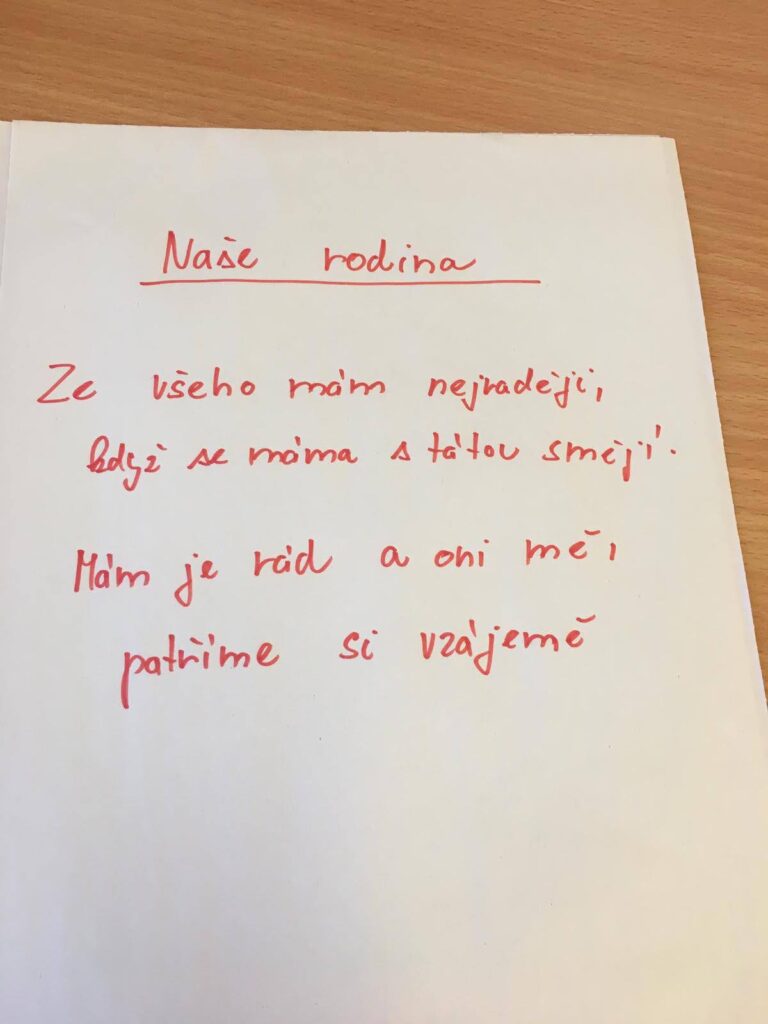 Naše rodina
Ze všeho mám nejraději,
když se máma s tátou smějí.
Mám je rád a oni mě,
patříme si vzájemě